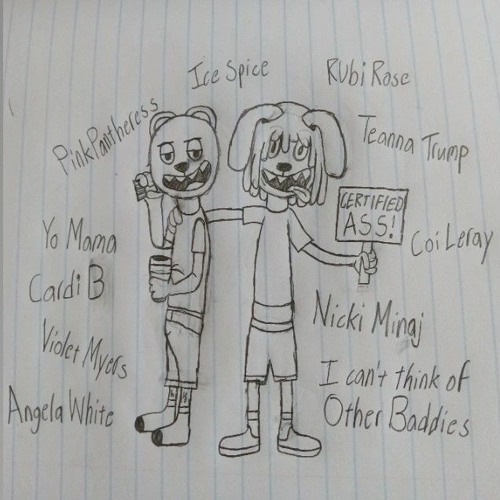 Ice Spice
Rubi Rose
PinkPantheress
Teanna Trump
CERTIFIED
ASS!
Yo Mama
Coi Leray
Cardi B
Nicki Minaj
Violet Myers
I can't think of
Angela White
Other Baddies